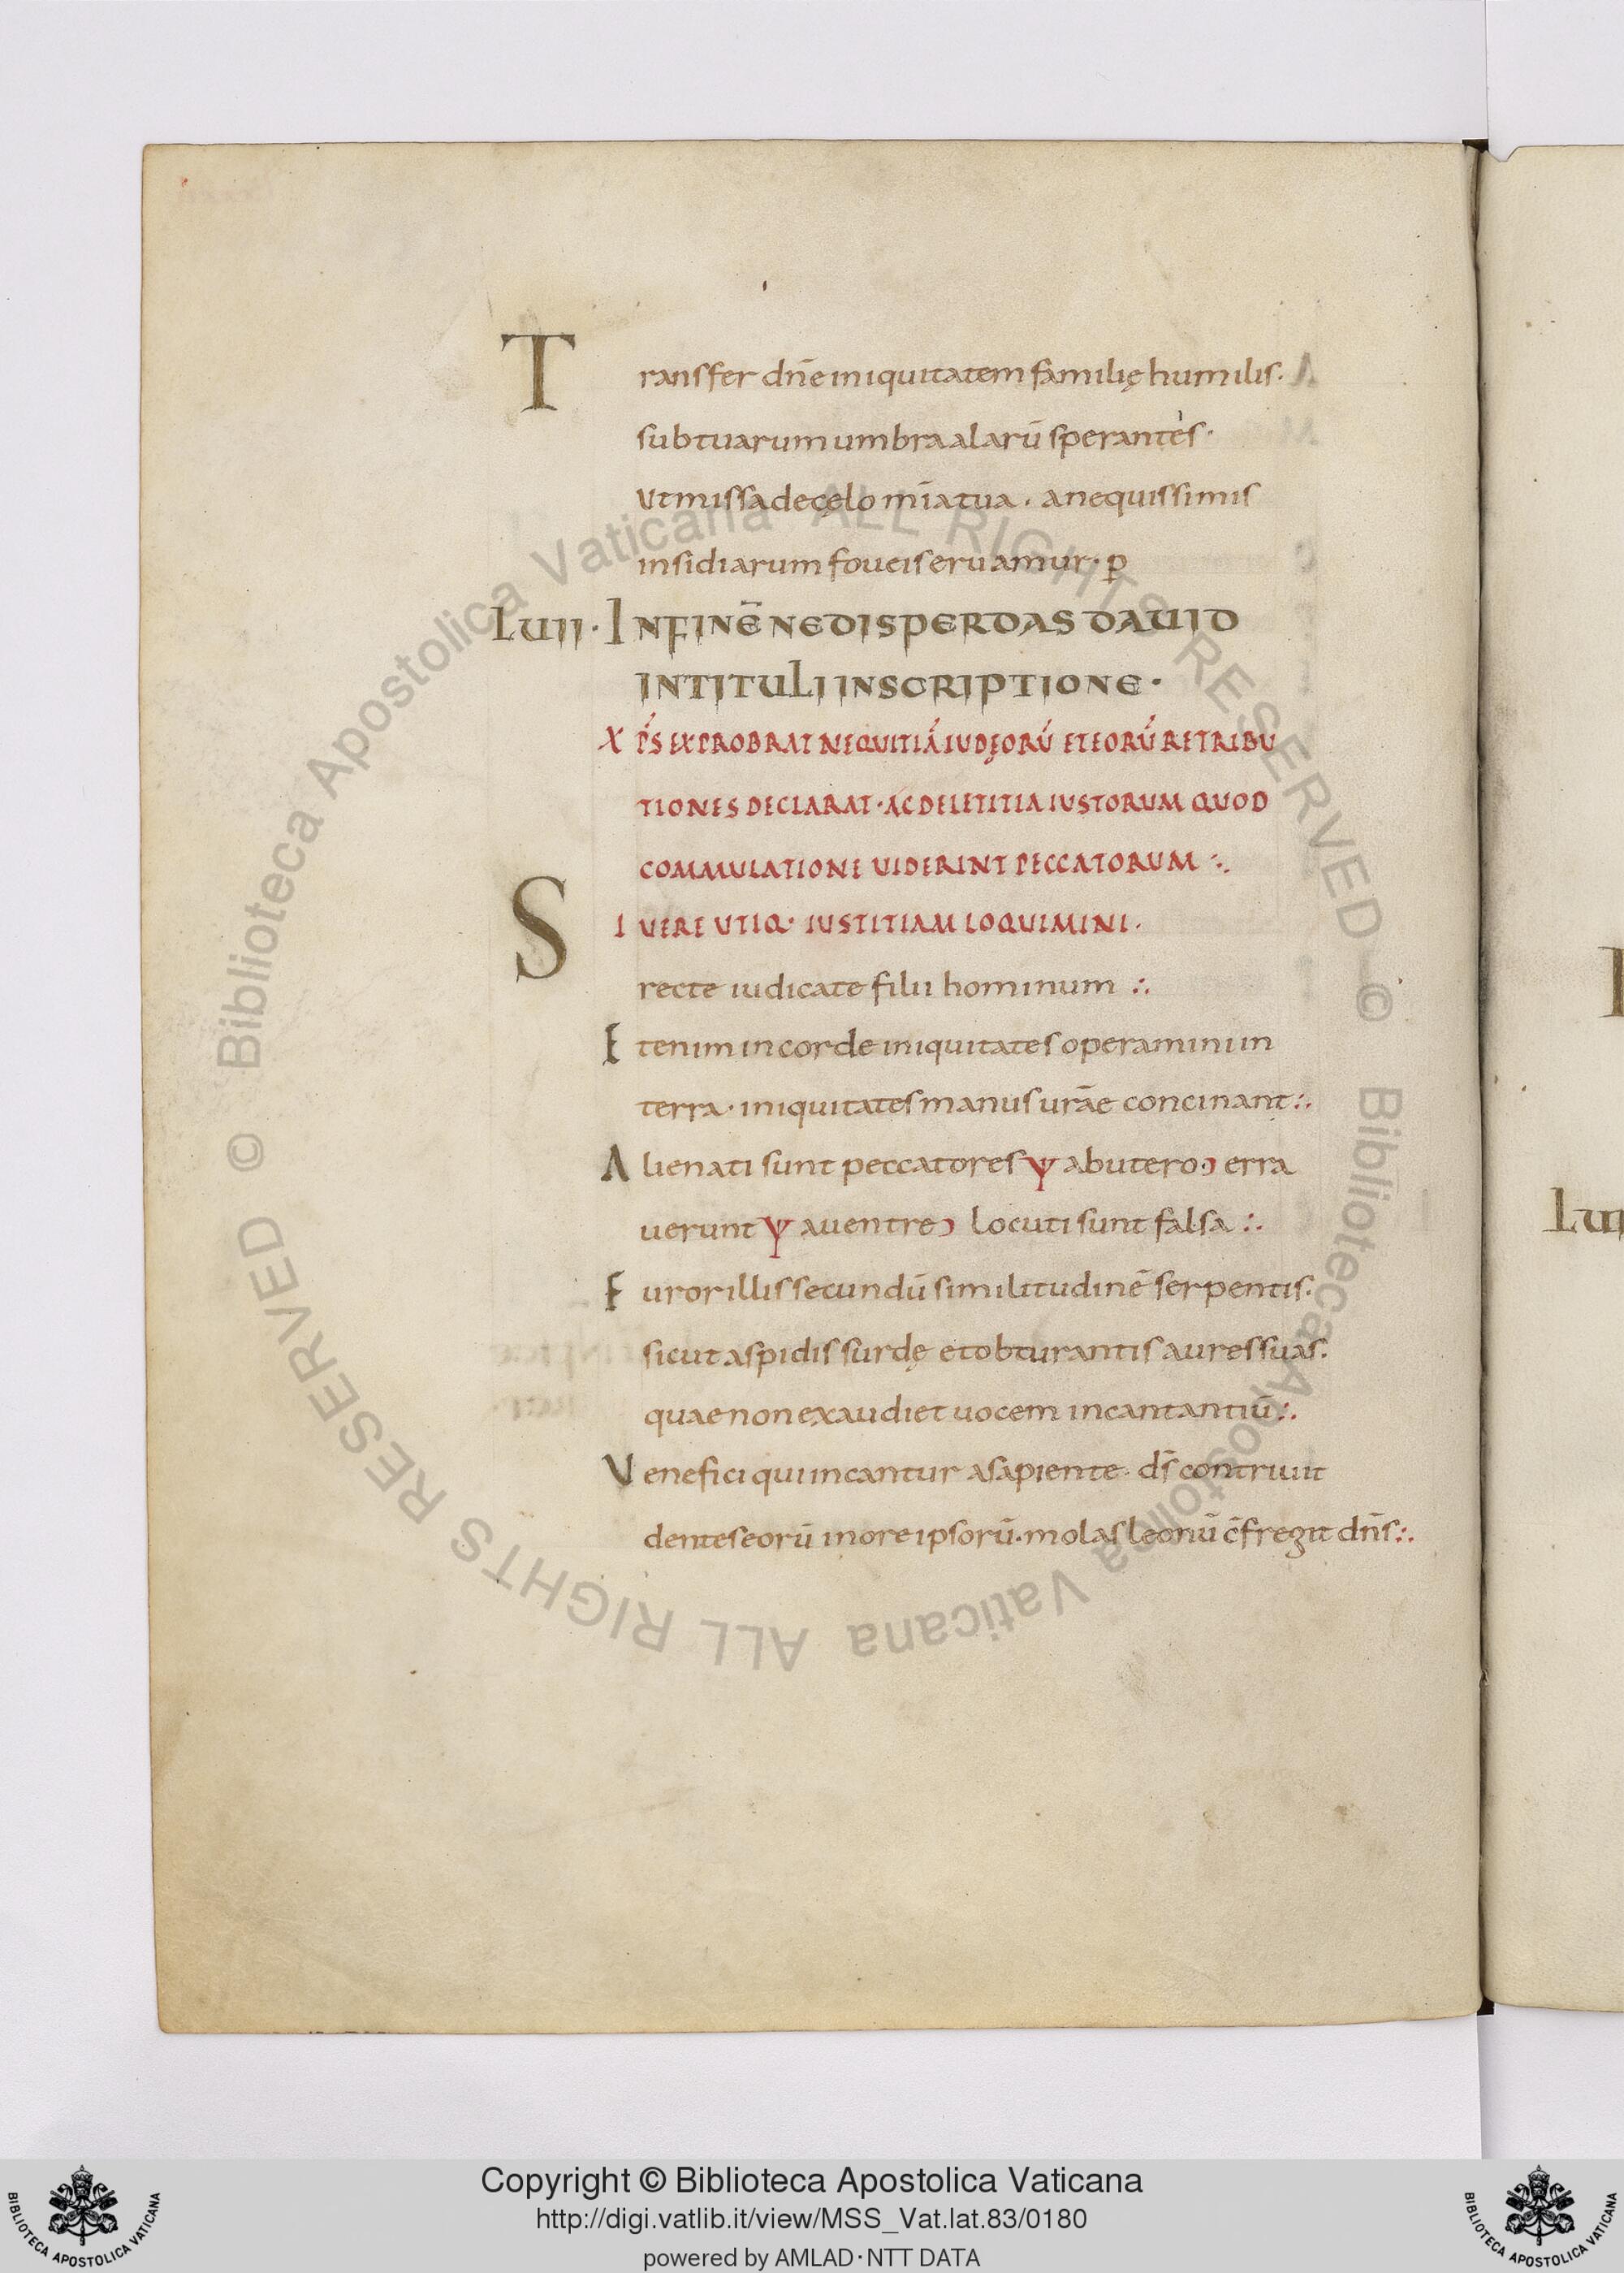 Transfer dn̄e iniquitatem familię humilis·
sub tuarum umbra alarū sperantes·
ut missa de cęlo mīa tua· a nequissimis
insidiarum foueis eruamur· p
LUII· IN FINĒ NE DISPERDAS DAUID
IN TITULI INSCRIPTIONE·
XP̄S EXPROBRAT NEQUITIĀ IUDĘORŪ ET EORŪ RETRIBU
TIONES DECLARAT· AC DE LETITIA IUSTORUM QUOD
COMMULATIONE UIDERINT PECCATORUM ∴
SI UERE UTIQ· IUSTITIAM LOQUIMINI·
recte iudicate filii hominum ∴
Etenim in corde iniquitates operamini in
terra· iniquitates manus urāe concinant ∴
Alienati sunt peccatores Ұ ab utero· ͻ erra
uerunt Ұ a uentre ͻ locuti sunt falsa ∴
Furor illis secundū similitudinē serpentis·
sicut aspidis surdę et obturantis aures suas·
quae non exaudiet uocem incantantiū ∴
Uenefici qui incantur a sapiente· dr̄s contriuit
dentes eorū in ore ipsorū· molas leonū c̄fregit dn̄s ∴
Lui
© Biblioteca Apostolica Vaticana ALL RIGHTS RESERVED © Biblioteca Apostolica Vaticana ALL RIGHTS RESERVED
BIBLIOTECA APOSTOLICA VATICANA
Copyright © Biblioteca Apostolica Vaticana
http://digi.vatlib.it/view/MSS_Vat.lat.83/0180
powered by AMLAD·NTT DATA
BIBLIOTECA APOSTOLICA VATICANA